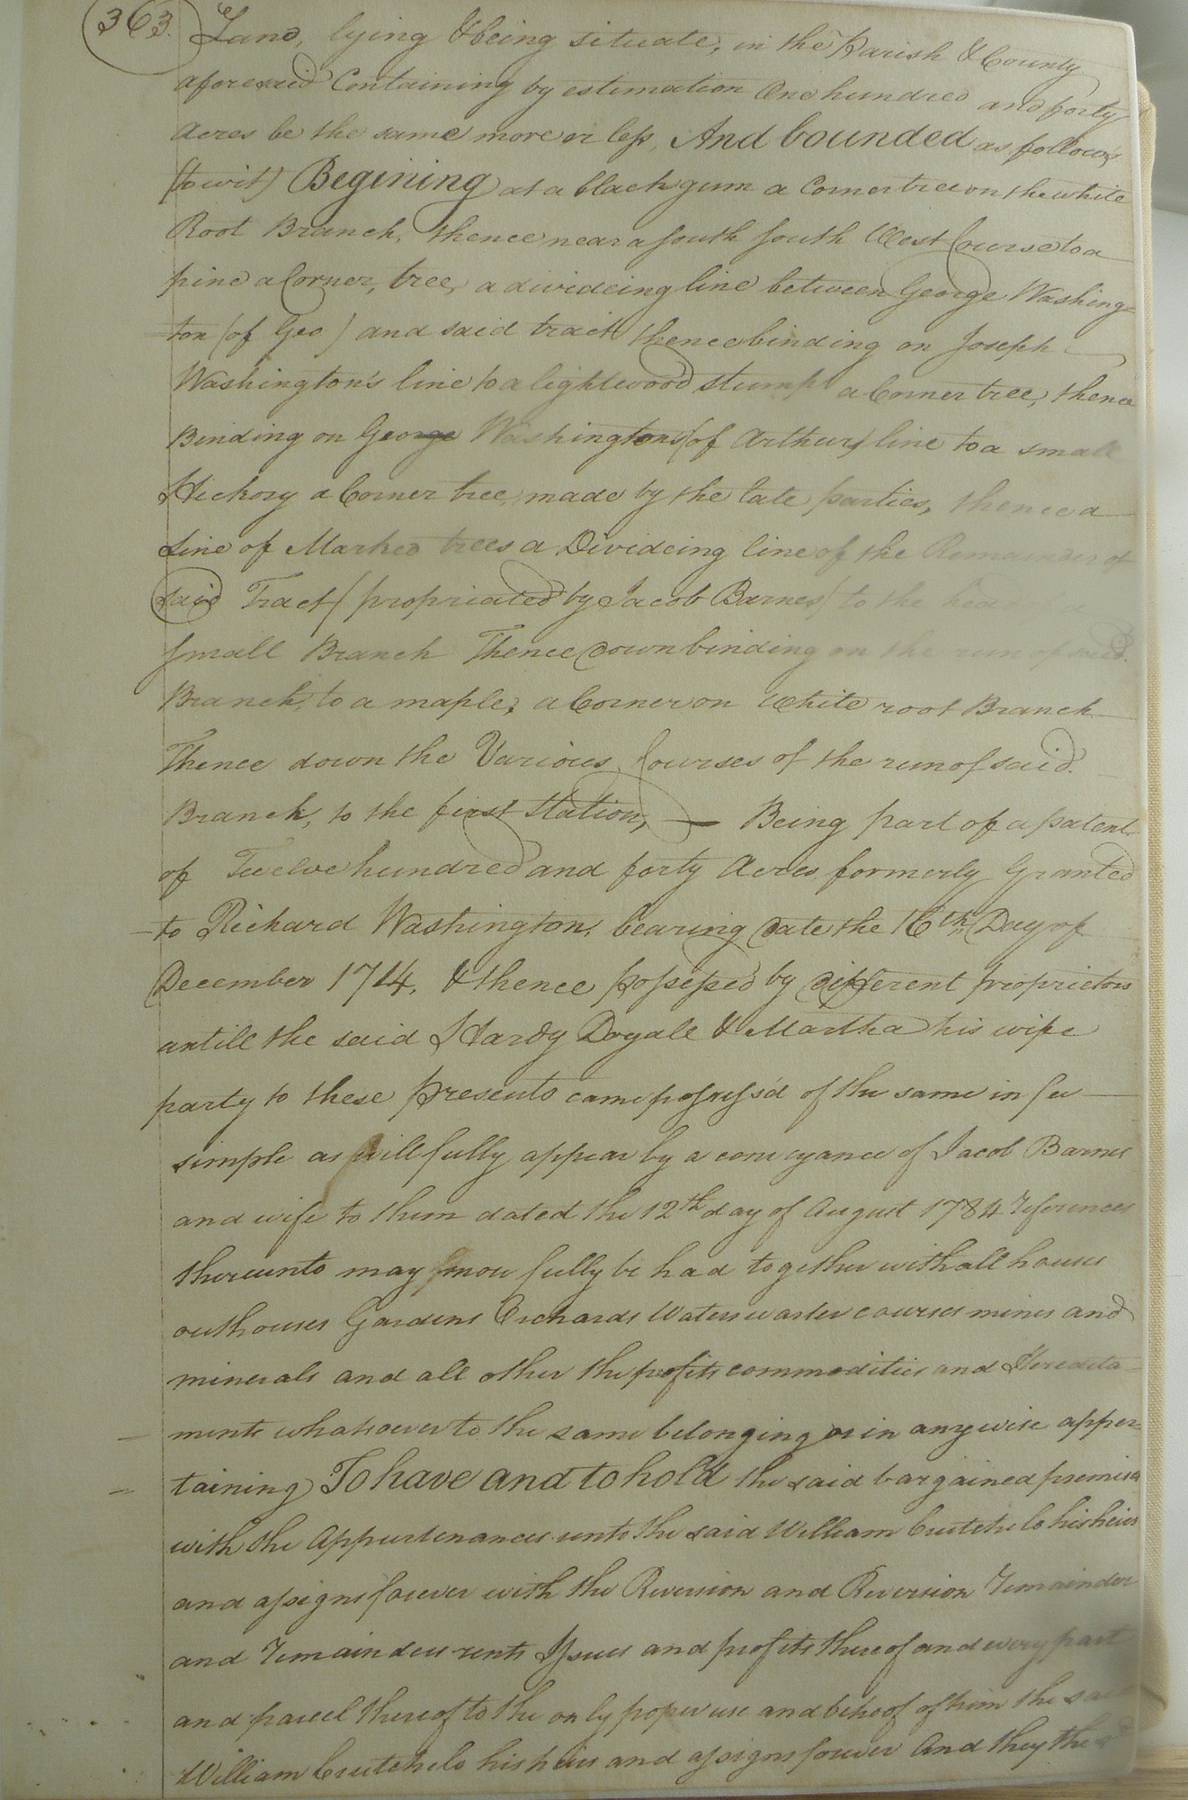 363.
Land, lying & being situate, in the Parish & County
aforesaid Containing by estimation One hundred and forty
Acres be the same more or less, And bounded as follows
(towit) Begining at a black gum a Corner tree on the white
Root Branch, thence near a South South West Course to a
pine a Corner, tree, a divideing line between George Washing-
ton (of Geo) and said tract thence binding on Joseph
Washington's line to a lightwood stump a Corner tree, thence
Binding on George Washingtons (of Arthur) line to a small
Hickory a Corner tree, made by the late parties, thence a
Line of Marked trees a Divideing line of the Remainder of
said Tract (propriated by Jacob Barnes) to the head
Small Branch Thence down binding on the run of said
Branch, to a maple, a Corner on White root Branch
Thence down the Various Courses of the run of said
Branch, to the first Station, — Being part of a patent
of Twelve hundred and forty Acres formerly Granted
to Richard Washington, bearing Date the 16th Day of
December 1714, & thence possessed by different proprietors
untill the said Hardy Doyale & Martha his wife
party to these presents came possess'd of the same in fee
simple as will fully appear by a conveyance of Jacob Barnes
and wife to them dated the 12th day of August 1784 references
thereunto may more fully be had together with all houses
outhouses Gardens Orchards Waters warter courses mines and
minerals and all other the profits commodities and Heredita-
ments whatsoever to the same belonging or in anywise apper-
taining To have and to hold the said bargained premises
with the Appurtenances unto the said William Crutchelo his heirs
and assigns forever with the Reversion and Reversion remainder
and remainders rents Issues and profits thereof and every part
and parcel thereof to the only proper use and behoof of him the
William Crutchelo his heirs and assigns forever And they the